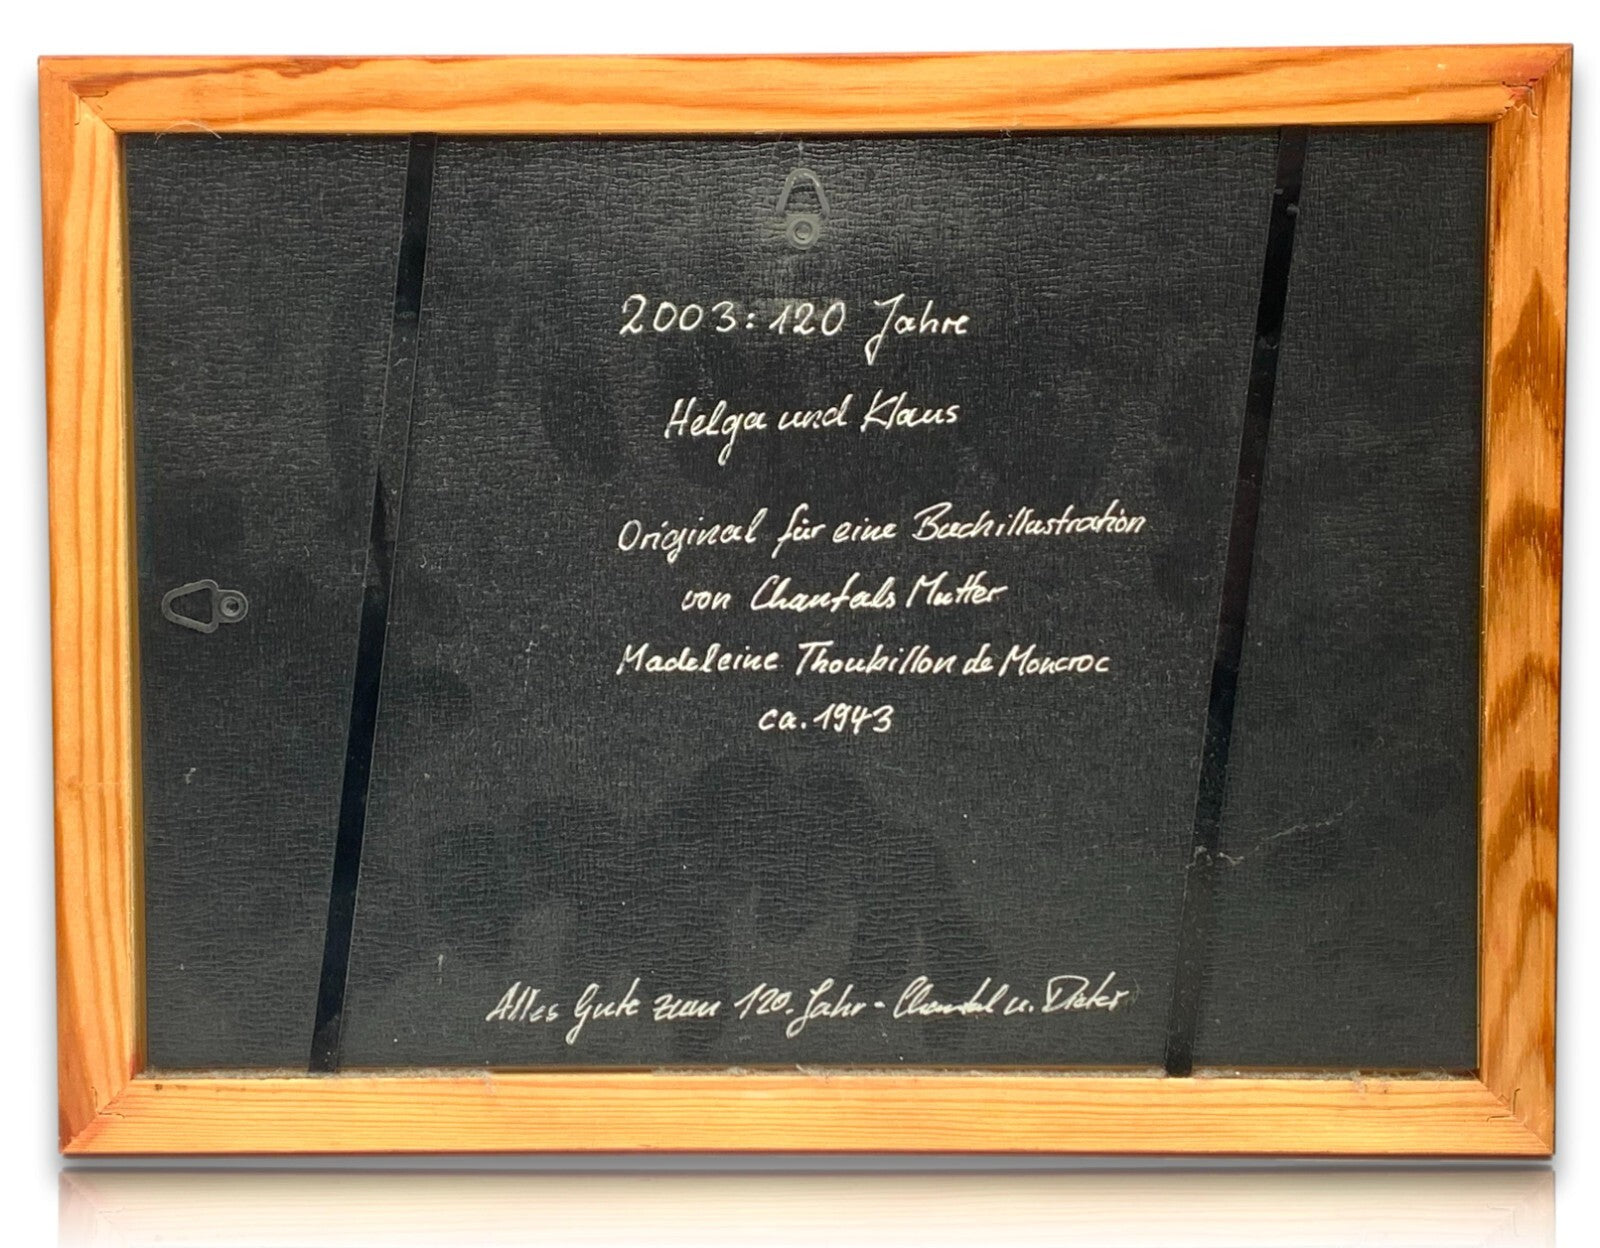 2003: 120 Jahre
Helga und Klaus
Original für eine Buchillustration
von Chantals Mutter
Madeleine Thoubillon de Moncroc
ca. 1943
Alles Gute zum 120. Jahr - Chantal u. Dieter